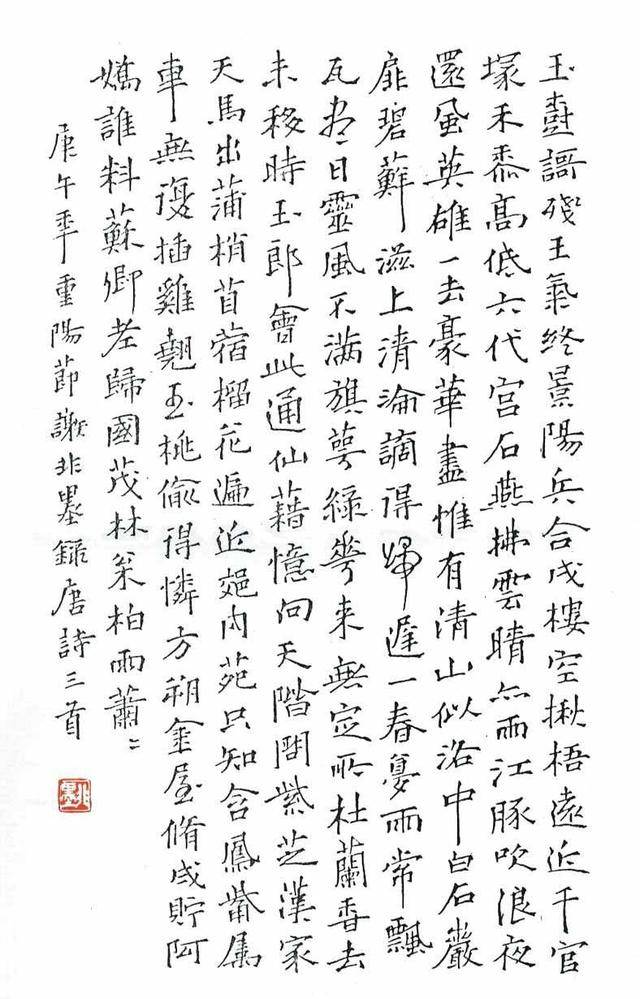 玉樹謌殘王氣終景陽兵合戍樓空楸梧遠近千官
塚禾黍高低六代宫石燕拂雲晴亦雨江豚吹浪夜
還風英雄一去豪華盡惟有清山似洛中白石巖
扉碧蘚滋上清淪謫得歸遲一春夢雨常飄
瓦盡日靈風不满旗萼緑華来無定所杜蘭香去
未移時玉郎會此通仙藉憶向天階問紫芝漢家
天馬出蒲梢苜蓿榴花遍近郊内苑只知含鳳觜属
車無復插雞翹玉桃偷得憐方朔金屋脩成貯阿
嬌誰料蘇卿老歸國茂林枀柏雨蕭〻
庚午年重陽節謝非墨録唐詩三首
非墨